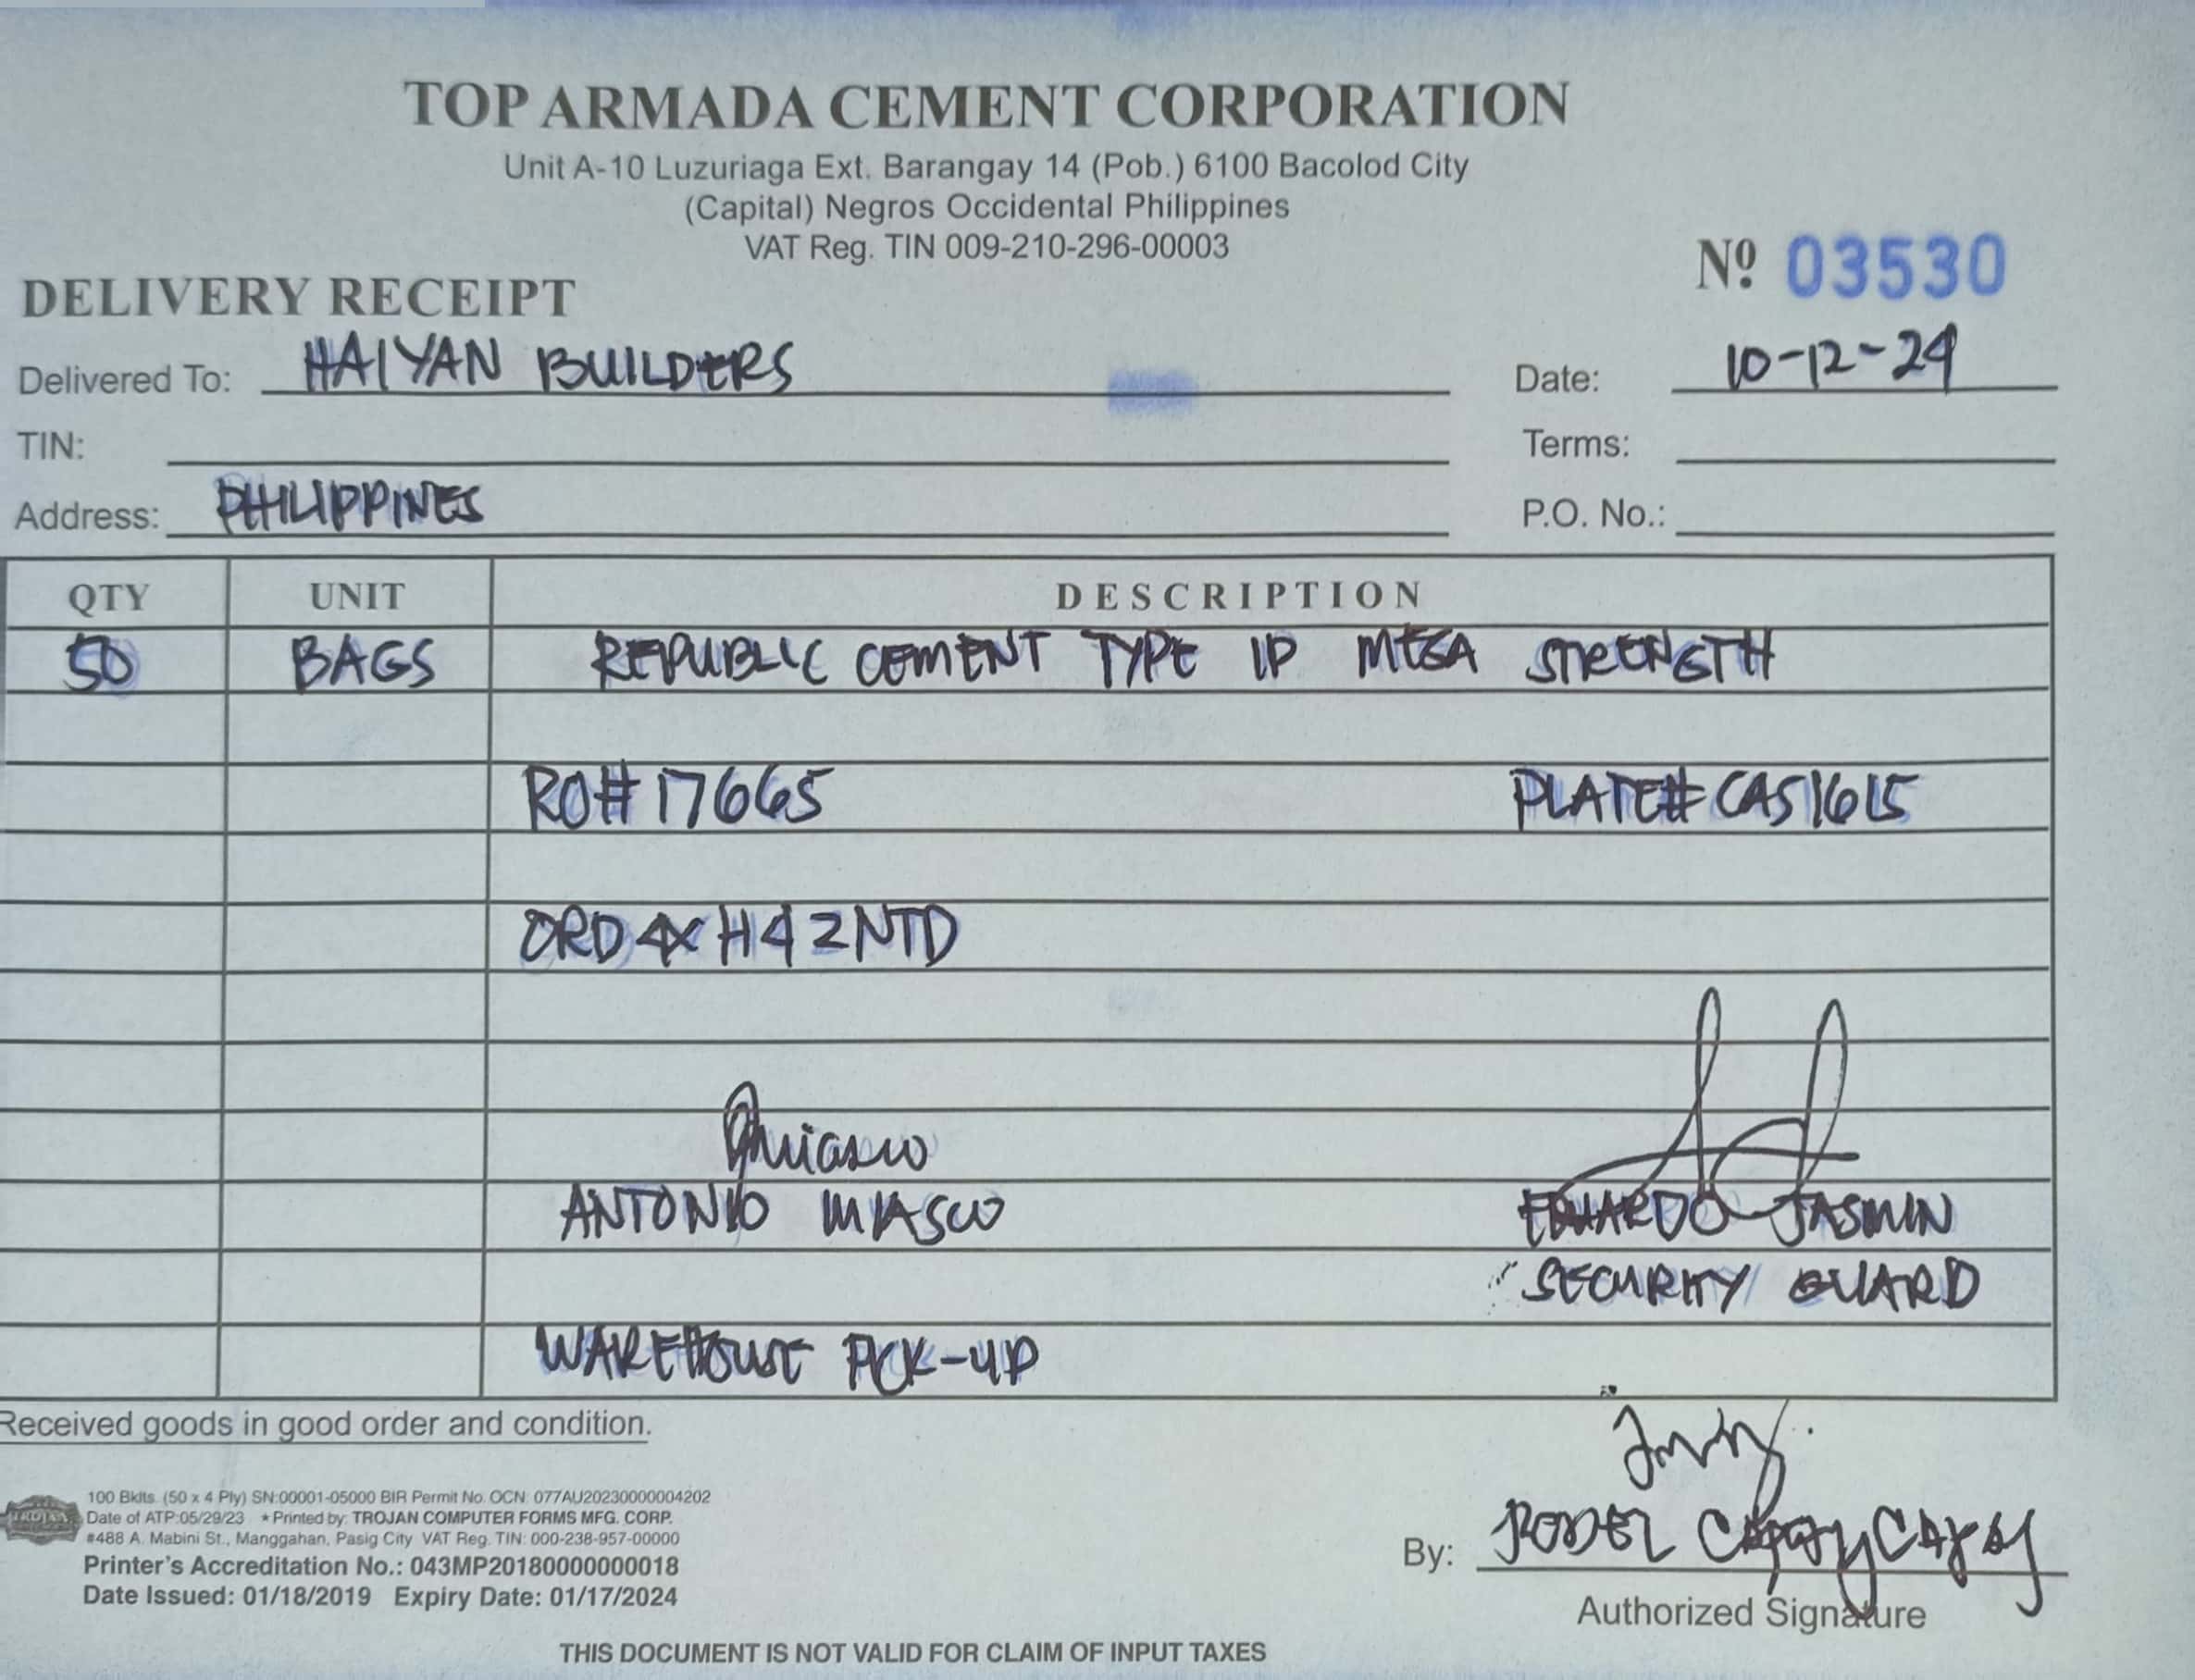 TOP ARMADA CEMENT CORPORATION
Unit A-10 Luzuriaga Ext. Barangay 14 (Pob.) 6100 Bacolod City
(Capital) Negros Occidental Philippines
VAT Reg. TIN 009-210-296-00003
Nº 03530
DELIVERY RECEIPT
Delivered To: HAIYAN BUILDERS Date: 10-12-24
TIN: Terms:
Address: PHILIPPINES P.O. No.:
QTY UNIT DESCRIPTION
50 BAGS REPUBLIC CEMENT TYPE 1P MEGA STRENGTH
RO# 17665 PLATE# CAS1615
ORD4XH42NTD
ANTONIO MIASCO EDUARDO JASMIN
SECURITY GUARD
WAREHOUSE PICK-UP
Received goods in good order and condition.
TROJAN
100 Bklts. (50 x 4 Ply) SN:00001-05000 BIR Permit No. OCN: 077AU20230000004202
Date of ATP:05/29/23 * Printed by: TROJAN COMPUTER FORMS MFG. CORP.
#488 A. Mabini St., Manggahan, Pasig City VAT Reg. TIN: 000-238-957-00000
Printer's Accreditation No.: 043MP20180000000018
Date Issued: 01/18/2019 Expiry Date: 01/17/2024
By: RODEL
Authorized Signature
THIS DOCUMENT IS NOT VALID FOR CLAIM OF INPUT TAXES